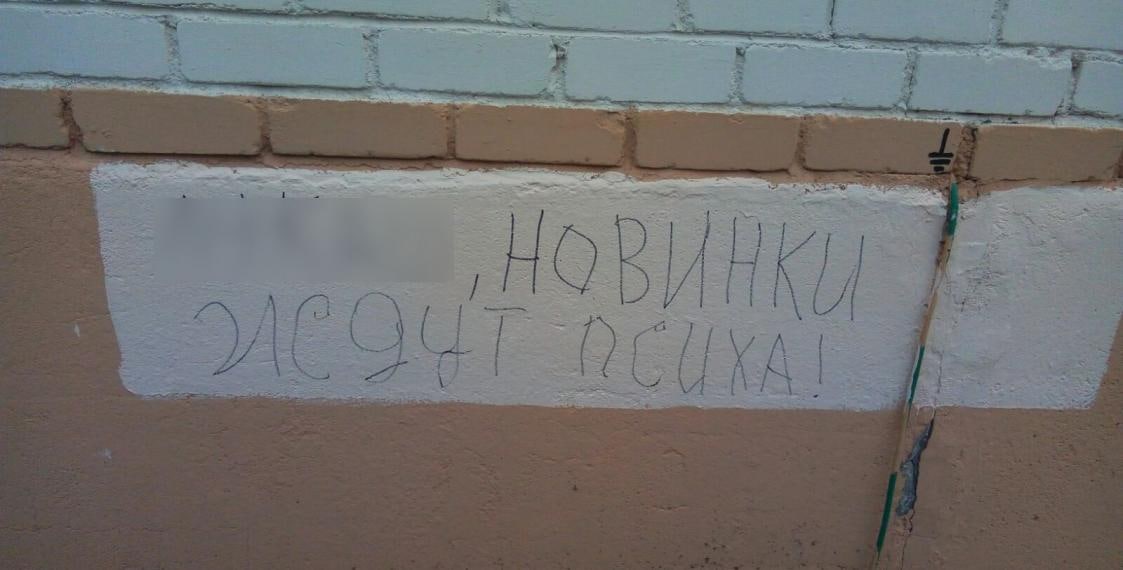 , НОВИНКИ
ЖДУТ ПСИХА!